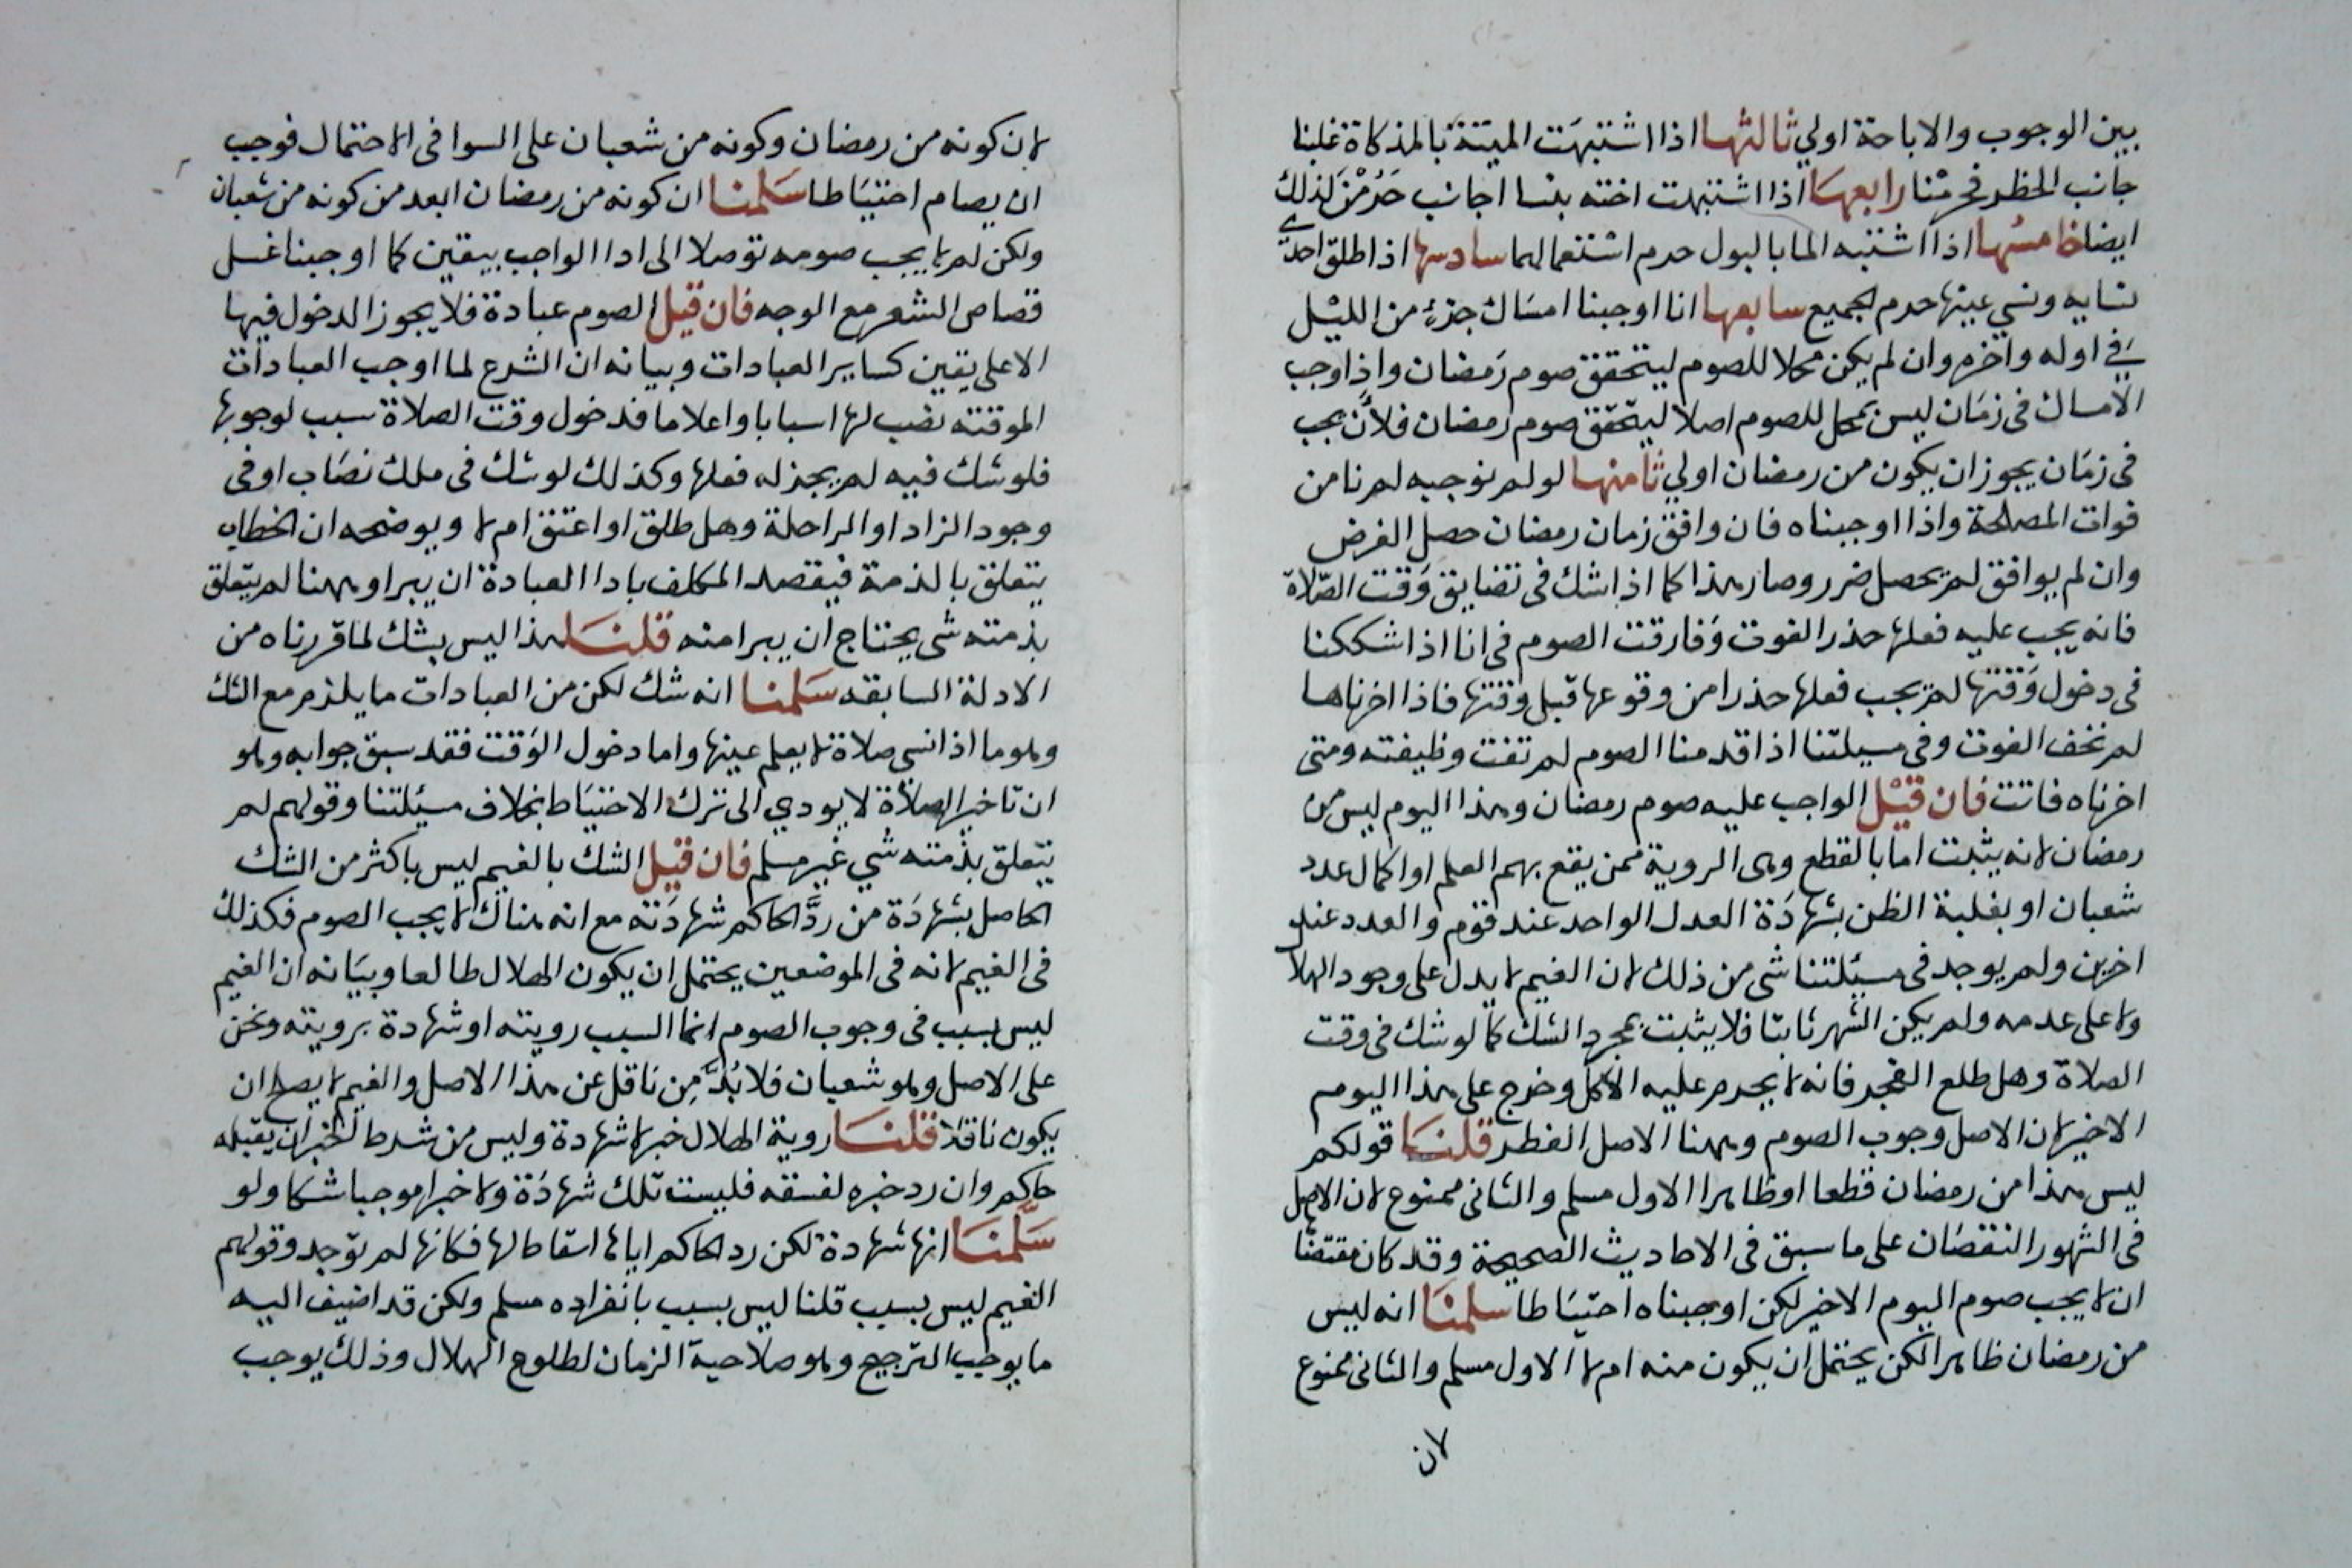 بين الوجوب والاباحة اولي ثالثها اذا اشتبهت الميتة بالمذكاة غلبنا
جانب الحظر فحرمنا رابعها اذا اشتبهت اخته بنسا اجانب حرمن لذلك
ايضا خامسها اذا اشتبه الما بالبول حرم استعمالهما سادسها اذا طلق احدى
نسايه ونسي عينها حرم الجميع سابعها انا اوجبنا امساك جزء من الليل
في اوله واخره وان لم يكن محلا للصوم ليتحقق صوم رمضان واذا وجب
الامساك في زمان ليس بمحل للصوم اصلا ليتحقق صوم رمضان فلان يجب
في زمان يجوز ان يكون من رمضان اولي ثامنها لو لم نوجبه لم نامن
فوات المصلحة واذا اوجبناه فان وافق زمان رمضان حصل الفرض
وان لم يوافق لم يحصل ضرر وصار هذا كما اذا شك في تضايق وقت الصلاة
فانه يجب عليه فعلها حذر الفوت وفارقت الصوم في انا اذا شككنا
في دخول وقتها لم يجب فعلها حذرا من وقوعها قبل وقتها فاذا اخرناها
لم نخف الفوت وفي مسيلتنا اذا قدمنا الصوم لم تفت وظيفته ومتى
اخرناه فاتت فان قيل الواجب عليه صوم رمضان وهذا اليوم ليس من
رمضان لانه يثبت اما بالقطع وهى الروية ممن يقع بهم العلم او اكمال عدد
شعبان او بغلبة الظن بشهادة العدل الواحد عند قوم والعدد عند
اخرين ولم يوجد في مسيلتنا شى من ذلك لان الغيم لا يدل على وجود الهلا
ولا على عدمه ولم يكن الشهر ثابتا فلا يثبت بمجرد الشك كما لو شك في وقت
الصلاة وهل طلع الفجر فانه لا يحرم عليه الاكل وخرج على هذا اليوم
الاخير لان الاصل وجوب الصوم وههنا الاصل الفطر قلنا قولكم
ليس هذا من رمضان قطعا او ظاهرا الاول مسلم والثانى ممنوع لان الاصل
في الشهور النقصان على ما سبق في الاحاديث الصحيحة وقد كان مقتضا
ان لا يجب صوم اليوم الاخير لكن اوجبناه احتياطا سلمنا انه ليس
من رمضان ظاهرا لكن يحتمل ان يكون منه ام لا الاول مسلم والثانى ممنوع
لان
لان كونه من رمضان وكونه من شعبان على السوا في الاحتمال فوجب
ان يصام احتياطا سلمنا ان كونه من رمضان ابعد من كونه من شعبان
ولكن لم لا يجب صومه توصلا الى ادا الواجب بيقين كما اوجبنا غسل
قصاص الشعر مع الوجه فان قيل الصوم عبادة فلا يجوز الدخول فيها
الا على يقين كساير العبادات وبيانه ان الشرع لما اوجب العبادات
الموقته نصب لها اسبابا واعلاما فدخول وقت الصلاة سبب لوجوبها
فلو شك فيه لم يجز له فعلها وكذلك لو شك في ملك نصاب او في
وجود الزاد او الراحلة وهل طلق او اعتق ام لا ويوضحه ان الخطاب
يتعلق بالذمة فيقصد المكلف بادا العبادة ان يبرا وههنا لم يتعلق
بذمته شى يحتاج ان يبرا منه قلنا هذا ليس بشك لما قررناه من
الادلة السابقه سلمنا انه شك لكن من العبادات ما يلزم مع الشك
وهو ما اذا نسى صلاة لا يعلم عينها واما دخول الوقت فقد سبق جوابه وهو
ان تاخير الصلاة لا يودي الى ترك الاحتياط بخلاف مسيلتنا وقولهم لم
يتعلق بذمته شي غير مسلم فان قيل الشك بالغيم ليس باكثر من الشك
الحاصل بشهادة من رد الحاكم شهادته مع انه هناك لا يجب الصوم فكذلك
في الغيم لانه في الموضعين يحتمل ان يكون الهلال طالعا وبيانه ان الغيم
ليس بسبب في وجوب الصوم انما السبب رويته او شهادة برويته ونحن
على الاصل وهو شعبان فلا بد من ناقل عن هذا الاصل والغيم لا يصلح ان
يكون ناقلا قلنا روية الهلال خبر لا شهادة وليس من شرط الخبر ان يقبله
حاكم وان رد خبره لفسقه فليست تلك شهادة ولا خبرا موجبا شكا ولو
سلمنا انها شهادة لكن رد الحاكم اياها اسقاط لها فكانها لم توجد وقولهم
الغيم ليس بسبب قلنا ليس بسبب بانفراده مسلم ولكن قد اضيف اليه
ما يوجب الترجيح وهو صلاحية الزمان لطلوع الهلال وذلك يوجب